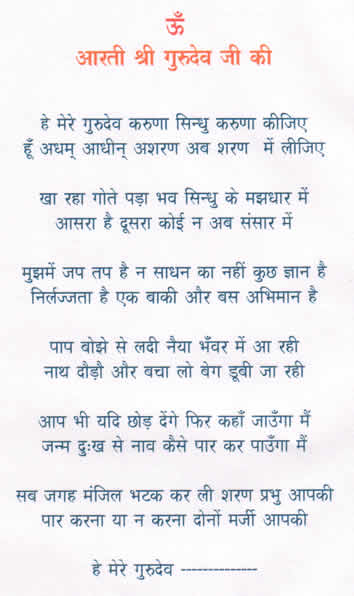 ॐ
आरती श्री गुरुदेव जी की
हे मेरे गुरुदेव करुणा सिन्धु करुणा कीजिए
हूँ अधम् आधीन् अशरण अब शरण में लीजिए
खा रहा गोते पड़ा भव सिन्धु के मझधार में
आसरा है दूसरा कोई न अब संसार में
मुझमें जप तप है न साधन का नहीं कुछ ज्ञान है
निर्लज्जता है एक बाकी और बस अभिमान है
पाप बोझे से लदी नैया भँवर में आ रही
नाथ दौड़ौ और बचा लो बेग डूबी जा रही
आप भी यदि छोड़ देंगे फिर कहाँ जाउँगा मैं
जन्म दुःख से नाव कैसे पार कर पाउँगा मैं
सब जगह मंजिल भटक कर ली शरण प्रभु आपकी
पार करना या न करना दोनों मर्जी आपकी
हे मेरे गुरुदेव --------------